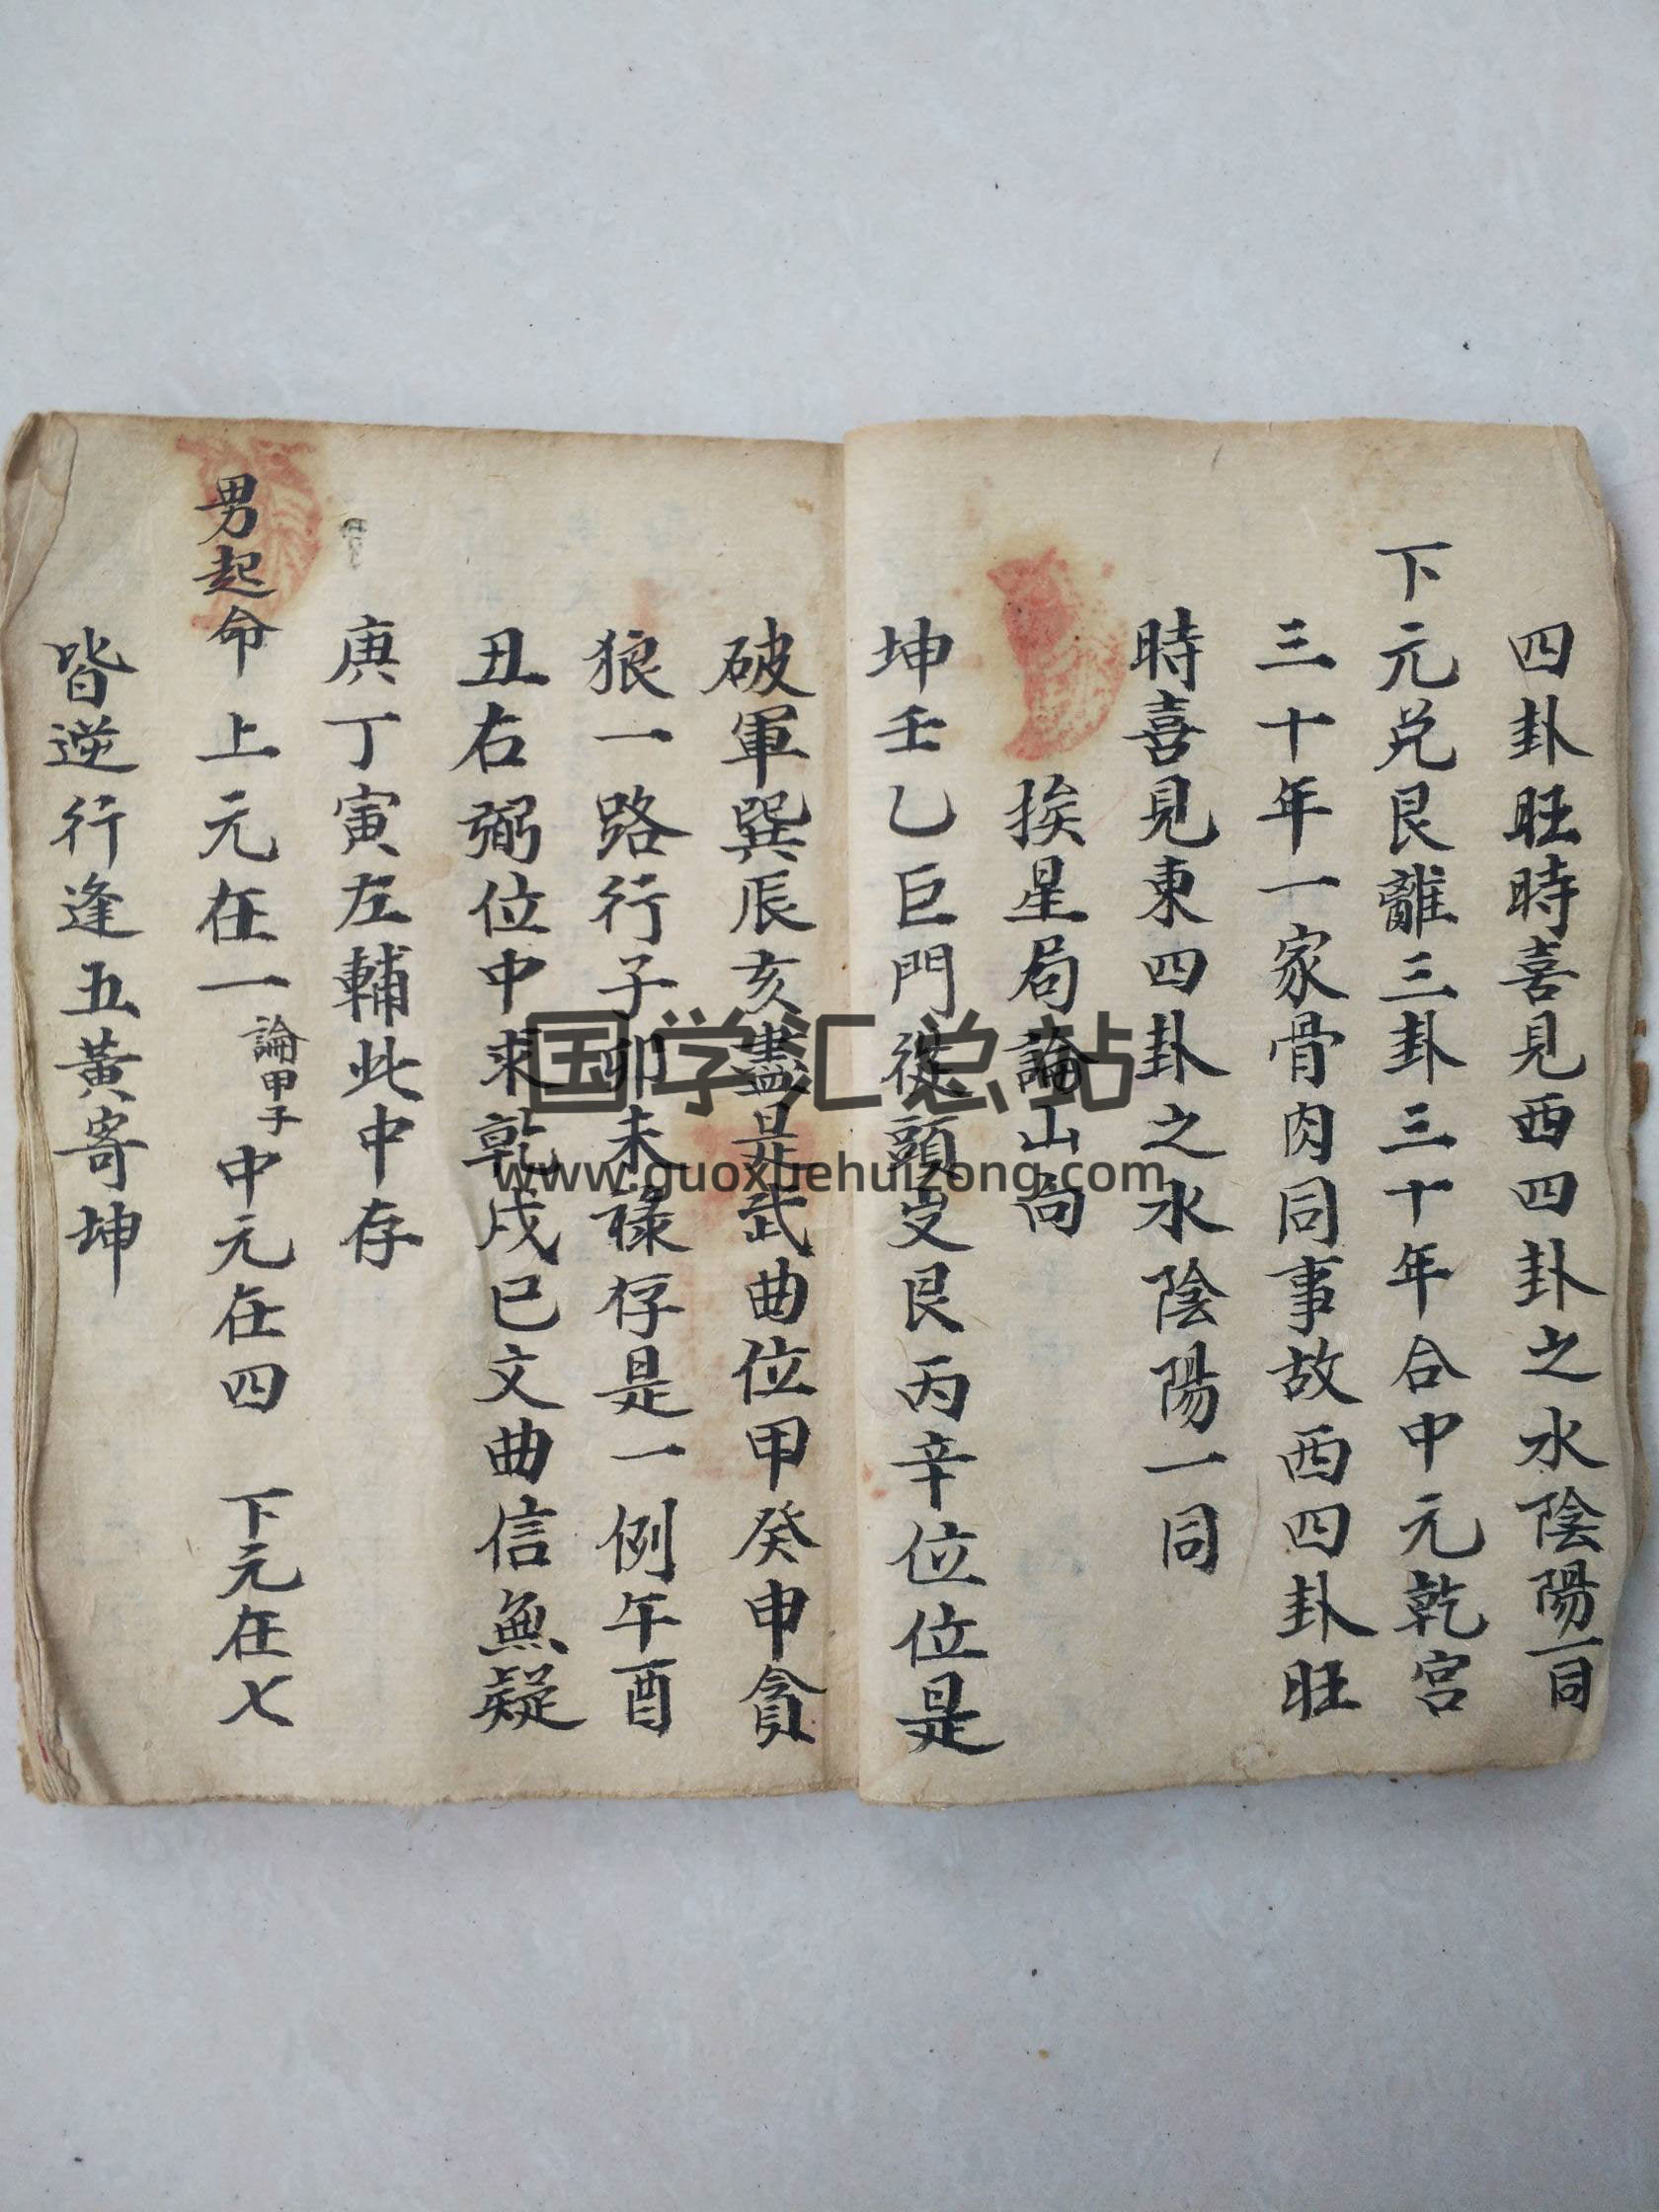 四卦旺時喜見西四卦之水陰陽一同
下元兌艮離三卦三十年合中元乾宮
三十年一家骨肉同事故西四卦旺
時喜見東四卦之水陰陽一同
挨星局論山向
坤壬乙巨門從頭爻艮丙辛位位是
破軍巽辰亥盡是武曲位甲癸申貪
狼一路行子卯未祿存是一例午酉
丑右弼位中求乾戌巳文曲信無疑
庚丁寅左輔此中存
男起命 上元在一論甲子 中元在四 下元在七
皆逆行逢五黃寄坤
国学汇总站
www.guoxuehuizong.com